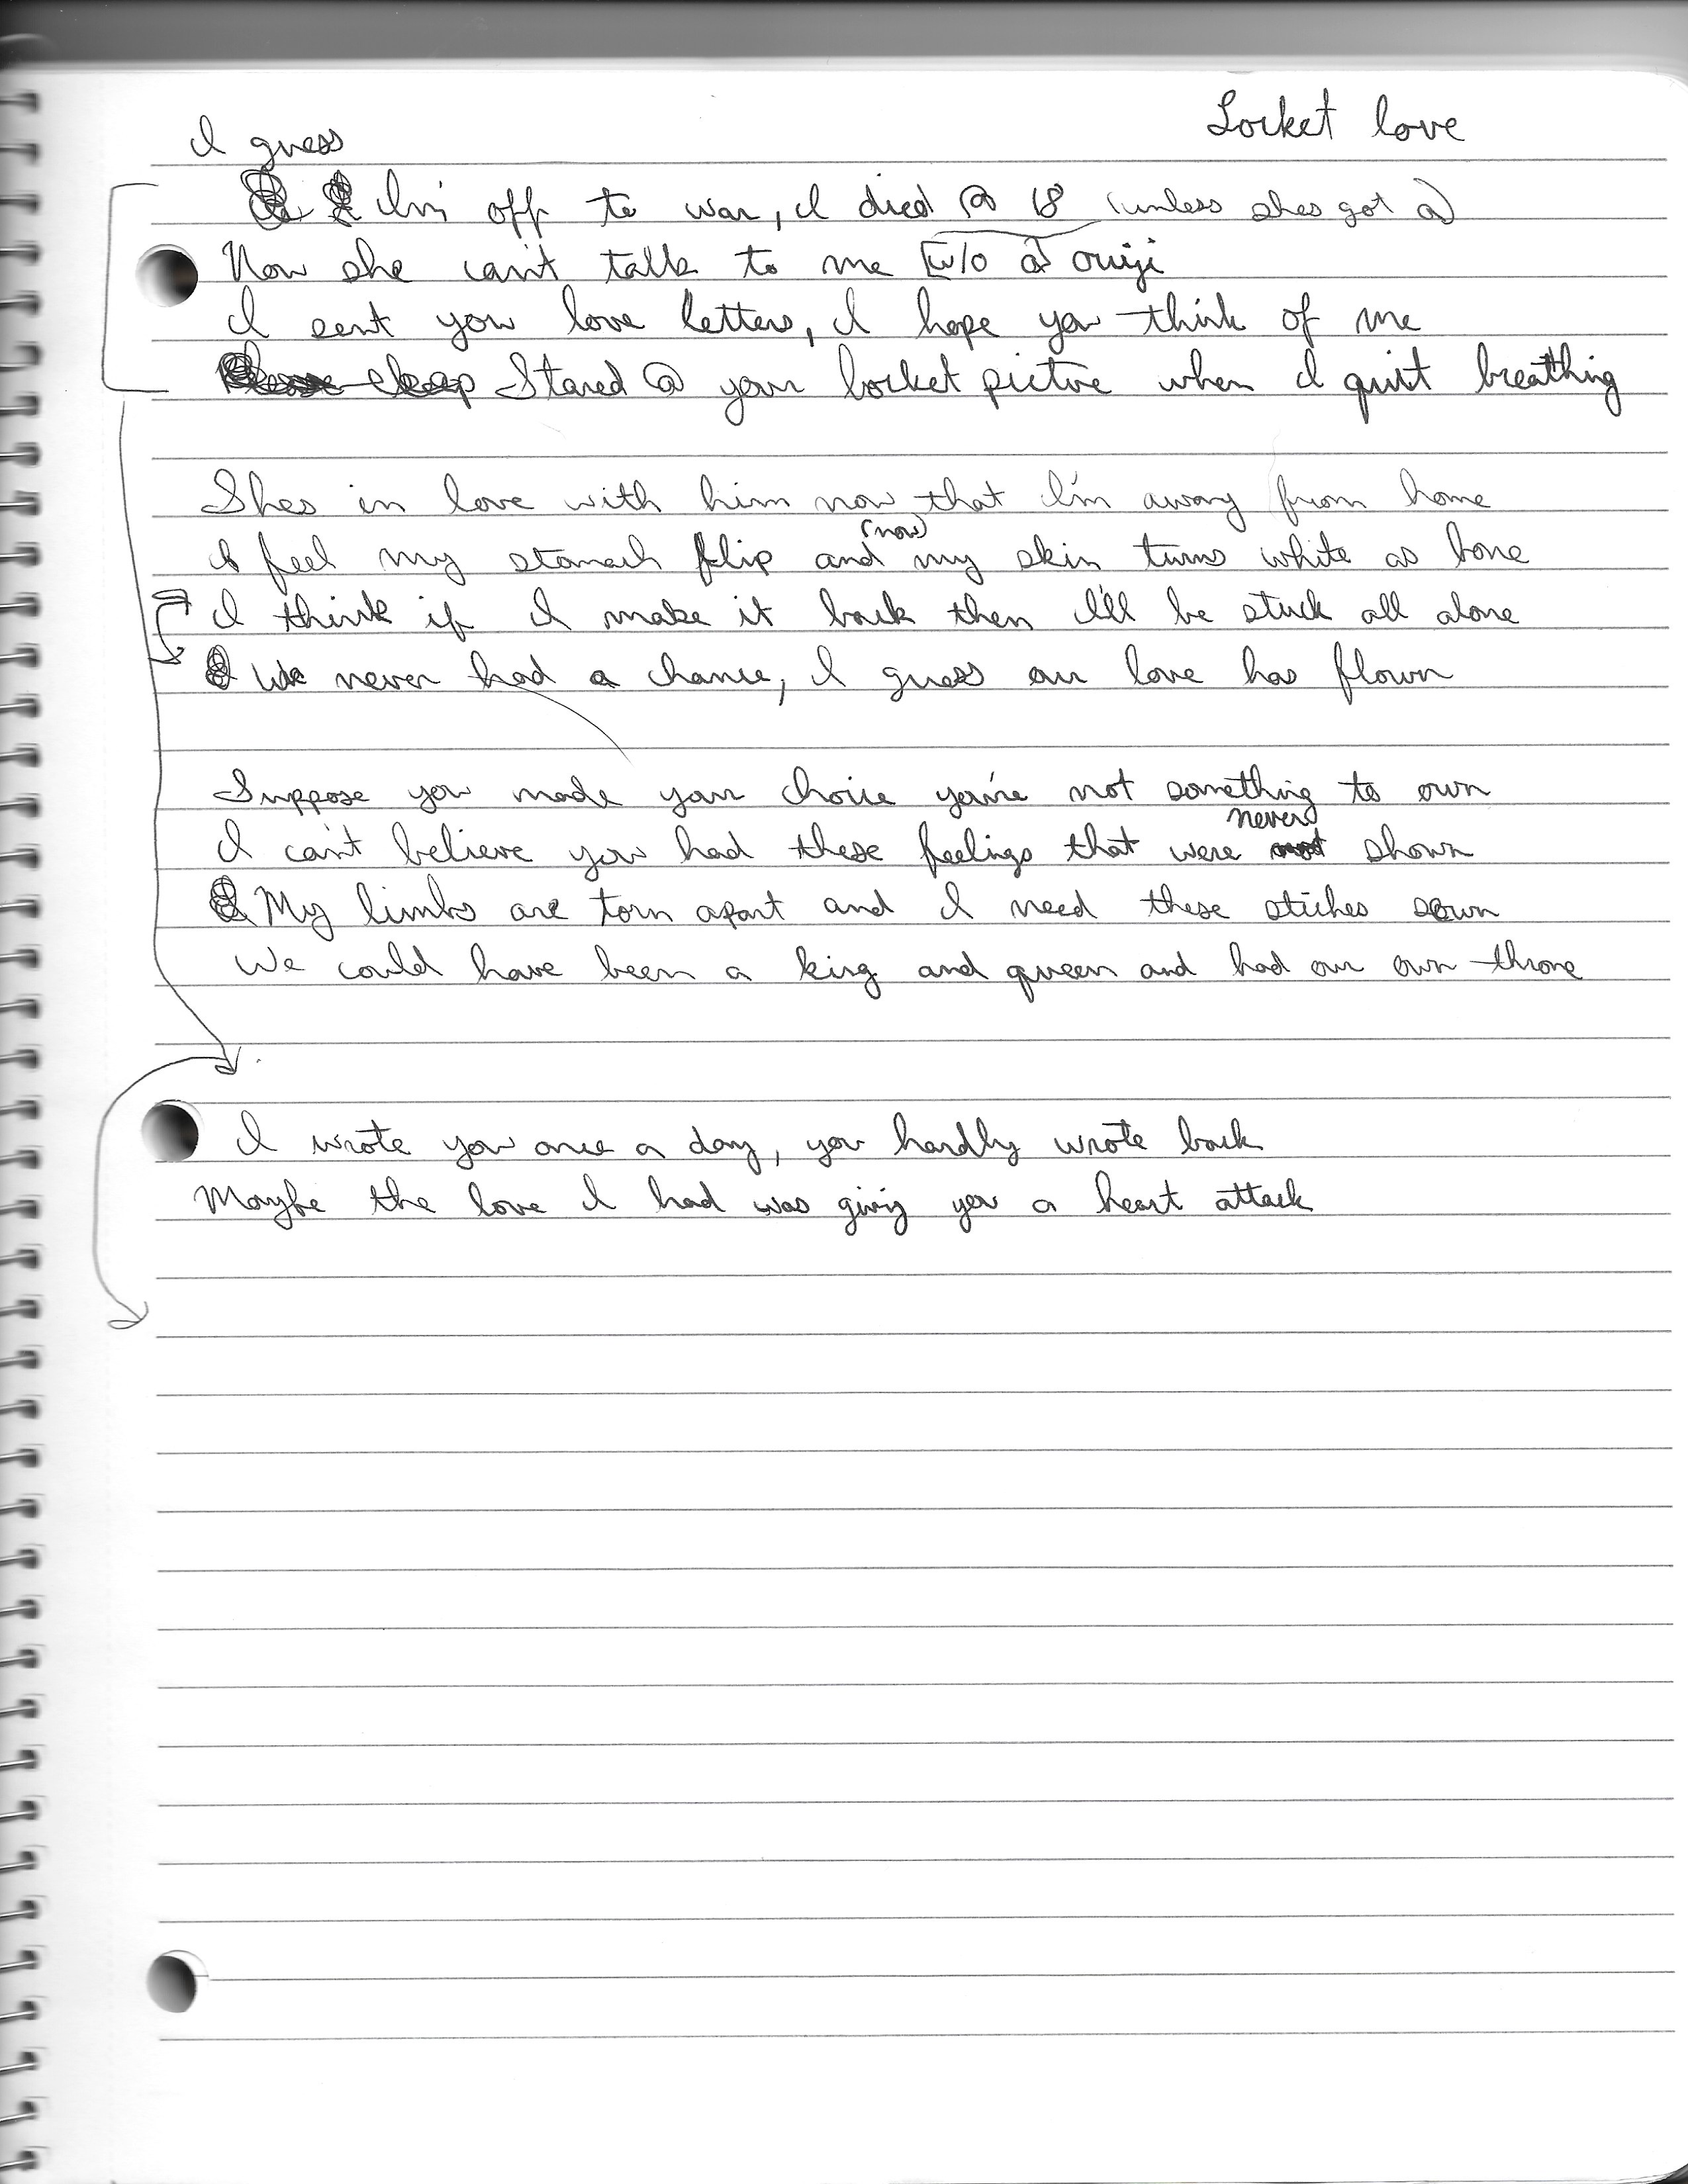 Locket love
I guess
I'm off to war, I died @ 18 (unless shes got a)
Now she can't talk to me [w/o a] ouiji
I sent you love letters, I hope you think of me
Stared @ your locket picture when I quit breathing
Shes in love with him now that I'm away from home
(now)
I feel my stomach flip and my skin turns white as bone
I think if I make it back then I'll be stuck all alone
We never had a chance, I guess our love has flown
Suppose you made your choice you're not something to own
never
I can't believe you had these feelings that were not shown
My limbs are torn apart and I need these stiches sewn
We could have been a king and queen and had our own throne
I wrote you once a day, you hardly wrote back
Maybe the love I had was giving you a heart attack